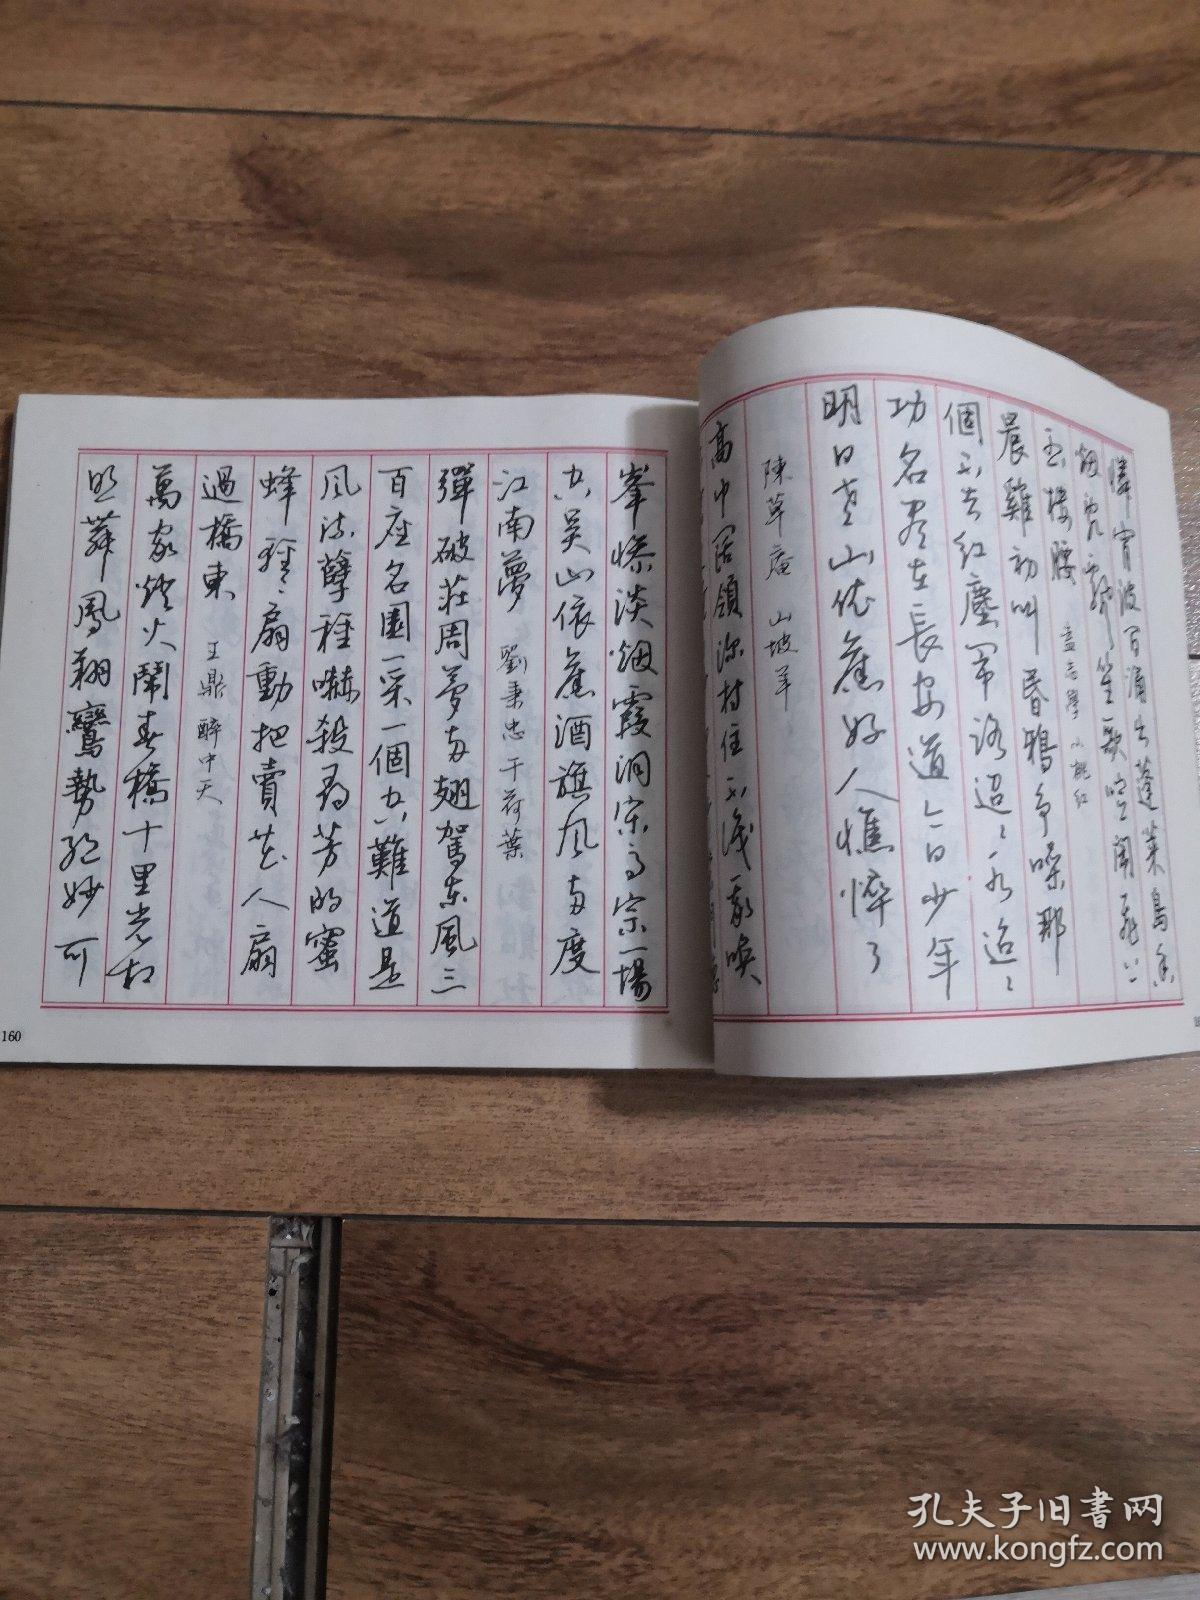 玉樓腰 孟志學 山桃紅
晨雞初叫昏鴉爭噪那
個不去紅塵鬧路迢迢水迢迢
功名盡在長安道今日少年
明日老山依舊好人憔悴了
陳草庵 山坡羊
高中
領深村住不識
喚
峯慘淡烟霞洞宋高宗一場
空吴山依舊酒旗风两度
江南夢 劉秉忠 干荷葉
彈破莊周夢两翅駕东風三
百座名園一采一個空難道是
风流孽種嚇殺尋芳的蜜
蜂輕輕扇動把賣花人扇
過橋東 王鼎 醉中天
萬家燈火鬧春橋十里光相
照舞鳳翔鸞勢絕妙可
160
孔夫子旧书网
www.kongfz.com